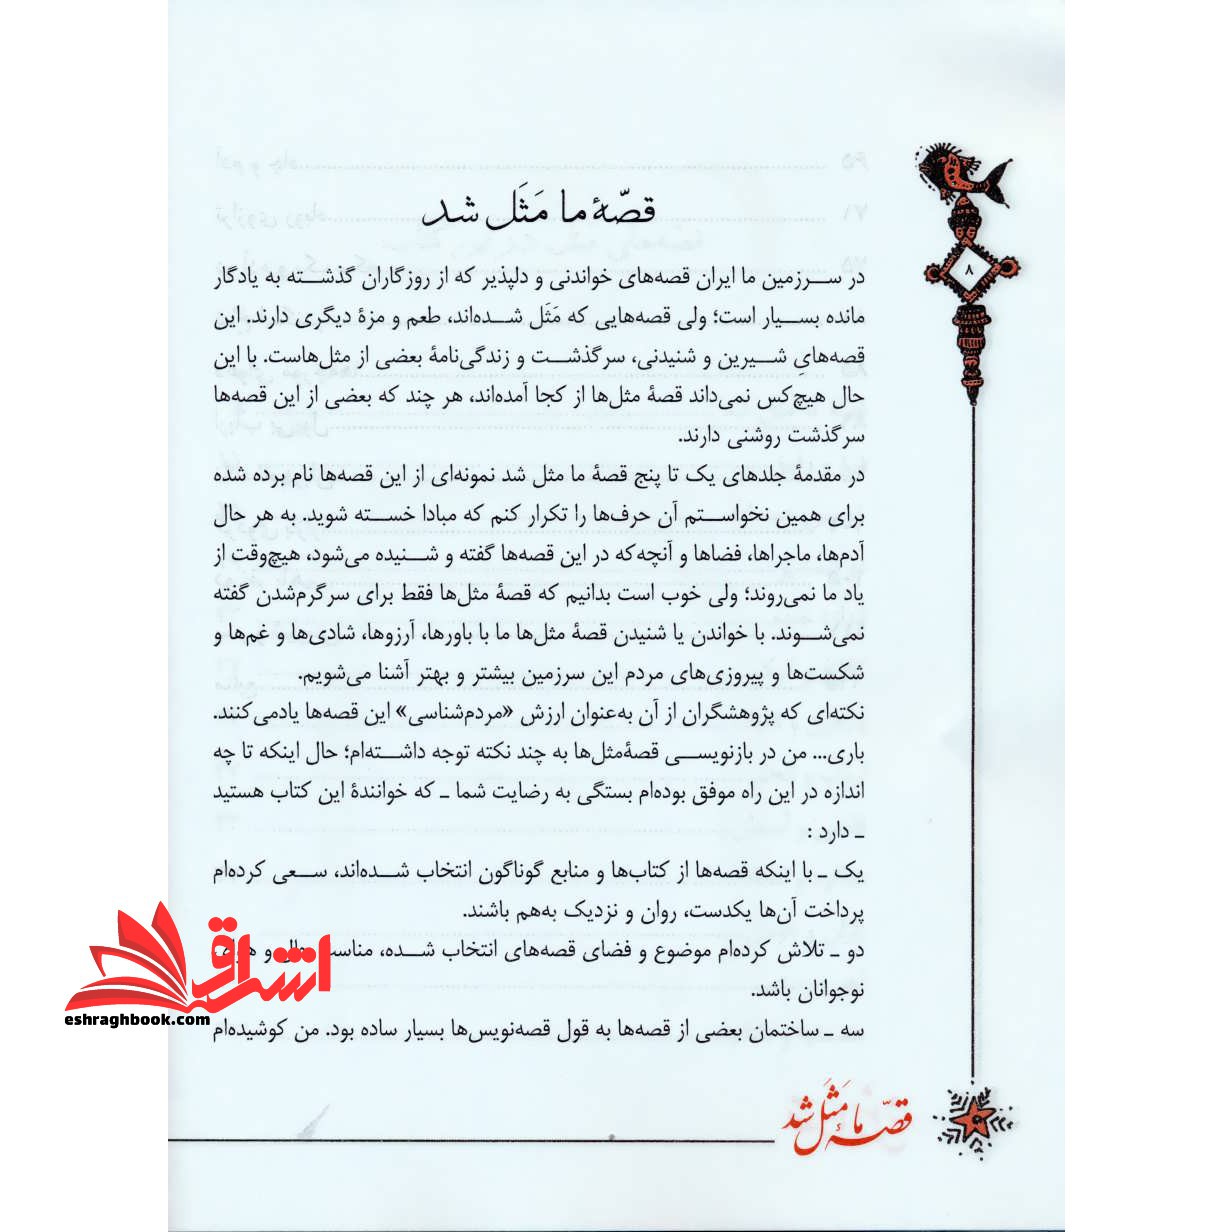 قصّهٔ ما مَثَل شد
۸
در سرزمین ما ایران قصه‌های خواندنی و دلپذیر که از روزگاران گذشته به یادگار
مانده بسیار است؛ ولی قصه‌هایی که مَثَل شده‌اند، طعم و مزهٔ دیگری دارند. این
قصه‌هایِ شیرین و شنیدنی، سرگذشت و زندگی‌نامهٔ بعضی از مثل‌هاست. با این
حال هیچ‌کس نمی‌داند قصهٔ مثل‌ها از کجا آمده‌اند، هر چند که بعضی از این قصه‌ها
سرگذشت روشنی دارند.
در مقدمهٔ جلدهای یک تا پنج قصهٔ ما مثل شد نمونه‌ای از این قصه‌ها نام برده شده
برای همین نخواستم آن حرف‌ها را تکرار کنم که مبادا خسته شوید. به هر حال
آدم‌ها، ماجراها، فضاها و آنچه‌که در این قصه‌ها گفته و شنیده می‌شود، هیچ‌وقت از
یاد ما نمی‌روند؛ ولی خوب است بدانیم که قصهٔ مثل‌ها فقط برای سرگرم‌شدن گفته
نمی‌شوند. با خواندن یا شنیدن قصهٔ مثل‌ها ما با باورها، آرزوها، شادی‌ها و غم‌ها و
شکست‌ها و پیروزی‌های مردم این سرزمین بیشتر و بهتر آشنا می‌شویم.
نکته‌ای که پژوهشگران از آن به‌عنوان ارزش «مردم‌شناسی» این قصه‌ها یادمی‌کنند.
باری... من در بازنویسی قصهٔ‌مثل‌ها به چند نکته توجه داشته‌ام؛ حال اینکه تا چه
اندازه در این راه موفق بوده‌ام بستگی به رضایت شما ـ که خوانندهٔ این کتاب هستید
ـ دارد :
یک ـ با اینکه قصه‌ها از کتاب‌ها و منابع گوناگون انتخاب شده‌اند، سعی کرده‌ام
پرداخت آن‌ها یکدست، روان و نزدیک به‌هم باشند.
دو ـ تلاش کرده‌ام موضوع و فضای قصه‌های انتخاب شده، مناسب و
نوجوانان باشد.
سه ـ ساختمان بعضی از قصه‌ها به قول قصه‌نویس‌ها بسیار ساده بود. من کوشیده‌ام
اشراق
eshraghbook.com
قصّهٔ ما مَثَل شد